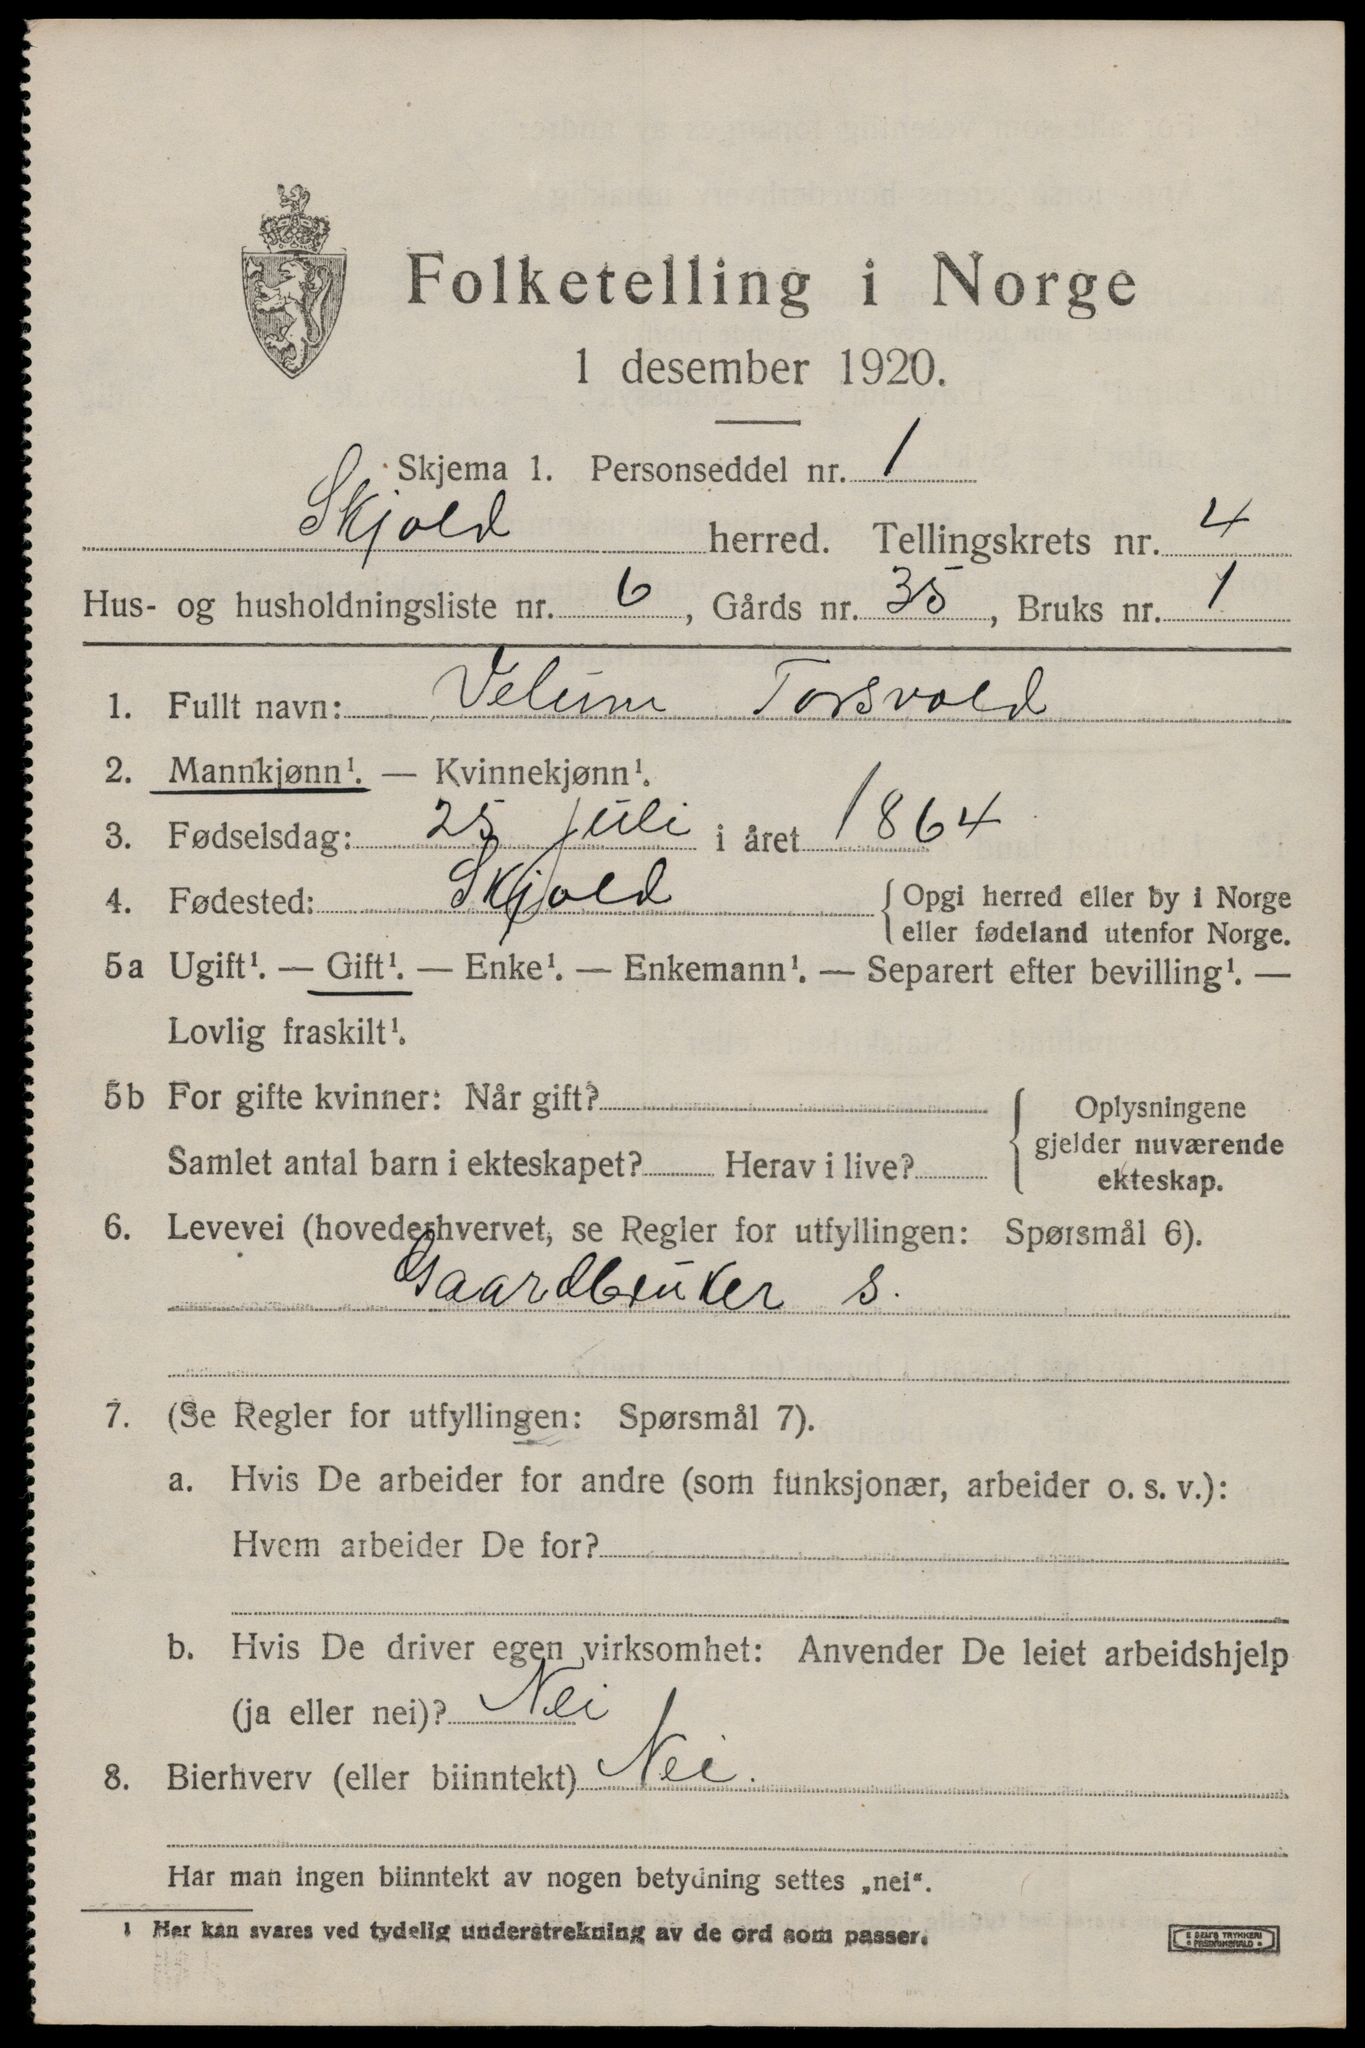 Folketelling i Norge
1 desember 1920.
Skjema 1. Personseddel nr. 1
Skjold herred. Tellingskrets nr. 4
Hus- og husholdningsliste nr. 6, Gårds nr. 35, Bruks nr. 1
1. Fullt navn: Torsvold
2. Mannkjønn¹. — Kvinnekjønn¹.
3. Fødselsdag: 25 juli i året 1864
4. Fødested: Skjold {Opgi herred eller by i Norge
eller fødeland utenfor Norge.
5a Ugift¹. — Gift¹. — Enke¹. — Enkemann¹. — Separert efter bevilling¹. —
Lovlig fraskilt¹.
5b For gifte kvinner: Når gift?
Samlet antal barn i ekteskapet? Herav i live?
{Oplysningene
gjelder nuværende
ekteskap.
6. Levevei (hovederhvervet, se Regler for utfyllingen: Spørsmål 6).
Gaardbruker s.
7. (Se Regler for utfyllingen: Spørsmål 7).
a. Hvis De arbeider for andre (som funksjonær, arbeider o. s. v.):
Hvem arbeider De for?
b. Hvis De driver egen virksomhet: Anvender De leiet arbeidshjelp
(ja eller nei)? Nei
8. Bierhverv (eller biinntekt) Nei.
Har man ingen biinntekt av nogen betydning settes „nei“.
1 Her kan svares ved tydelig understrekning av de ord som passer.